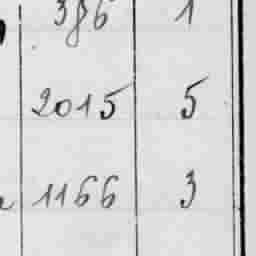 386 1
2015 5
1166 3